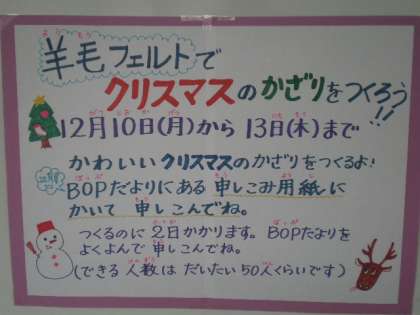 羊毛フェルトで
クリスマスのかざりをつくろう!!
12月10日(月)から13日(木)まで
かわいいクリスマスのかざりをつくるよ!
BOPだよりにある申しこみ用紙に
かいて申しこんでね。
つくるのに2日かかります。BOPだよりを
よくよんで申しこんでね。
(できる人数はだいたい50人くらいです)